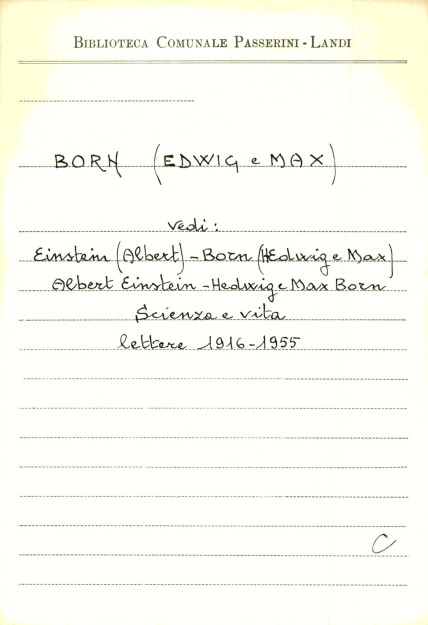 BIBLIOTECA COMUNALE PASSERINI - LANDI
BORN (EDWIG e MAX)
vedi:
Einstein (Albert) - Born (HEdwig e Max)
Albert Einstein - Hedwig e Max Born
Scienza e vita
lettere 1916-1955
C